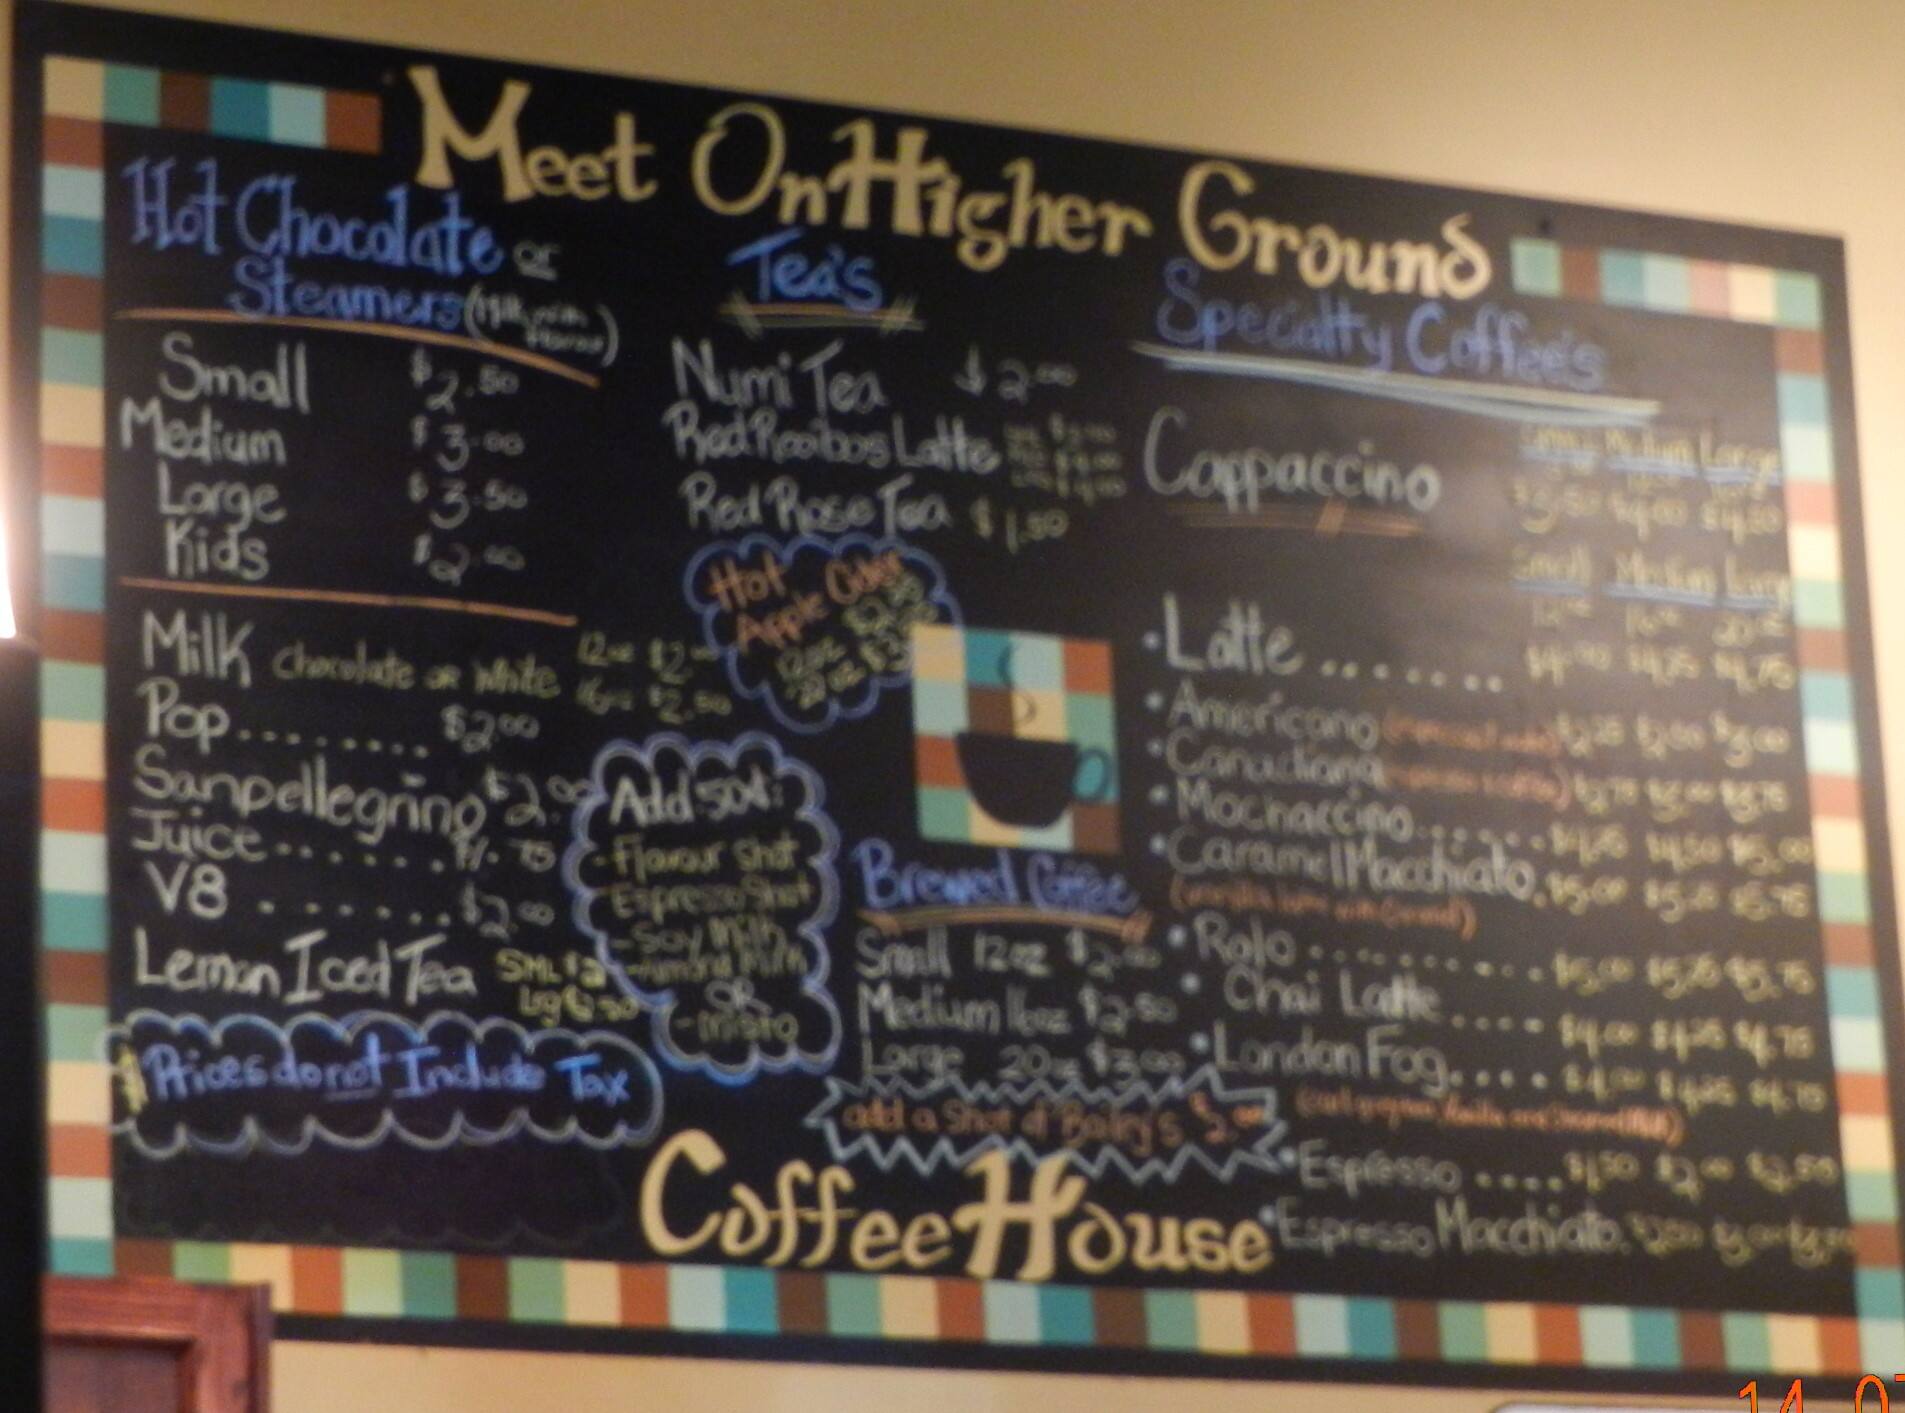 Meet On Higher Ground
Hot Chocolate or
Steamers (Milk with
flavour)
Small $2.50
Medium $3.00
Large $3.50
Kids $2.00
Milk Chocolate or White 12oz $2.00
16oz $2.50
Pop........ $2.00
Sanpellegrino $2.00
Juice....... $1.75
V8 ....... $2.00
Lemon Iced Tea SML $2
Lrg $2.50
Prices do not Include Tax
Tea's
Numi Tea $2.00
Red Rooibos Latte
Red Rose Tea $1.50
Hot
Apple Cider
12oz
20oz
Add 50¢:
- Flavour Shot
- Espresso Shot
- Soy Milk
- Almond Milk
OR
- misto
Brewed Coffee
Small 12oz $2.00
Medium 16oz $2.50
Large 20oz $3.00
add a Shot of Bailey's $2.00
Specialty Coffee's
Small Medium Large
Cappaccino $3.50 $4.00 $4.50
Small Medium Large
12oz 16oz 20oz
• Latte ....... $4.00 $4.25 $4.75
• Americano $2.25 $2.50 $3.00
• Canadiana $2.75 $3.00 $3.75
• Mochaccino...... $4.25 $4.50 $5.00
• Caramel Macchiato. $5.00 $5.25 $5.75
• Rolo .......... $5.00 $5.25 $5.75
• Chai Latte .... $4.00 $4.25 $4.75
• London Fog.... $4.00 $4.25 $4.75
• Espresso .... $1.50 $2.00 $2.50
• Espresso Macchiato.
Coffee House
14 07